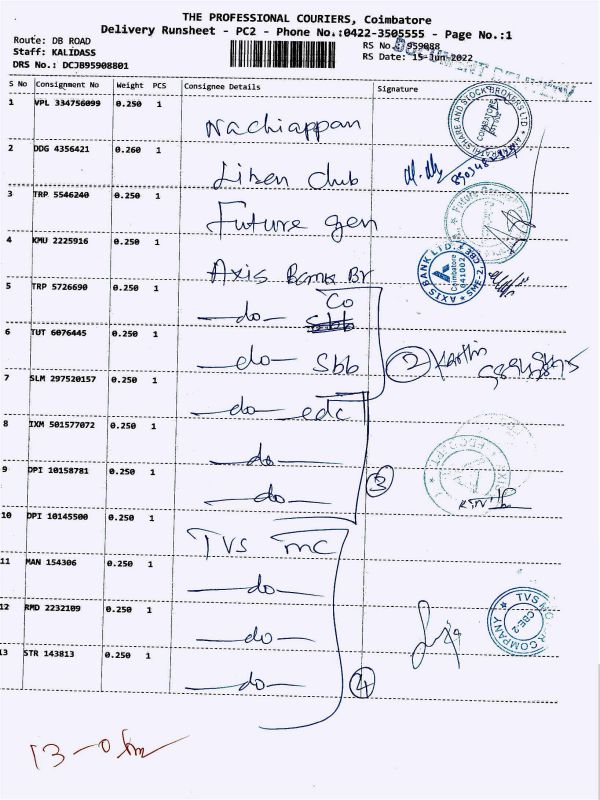 THE PROFESSIONAL COURIERS, Coimbatore
Delivery Runsheet - PC2 - Phone No.:0422-3505555 - Page No.:1
Route: DB ROAD
RS No : 959088
Staff: KALIDASS
RS Date: 15-Jun-2022
DRS No.: DCJB95908801
S No Consignment No Weight PCS Consignee Details Signature
1 VPL 334756099 0.250 1 Nachiappan
2 DDG 4356421 0.260 1 Linen club
3 TRP 5546240 0.250 1 Future gen
4 KMU 2225916 0.250 1 Axis Bank Br
AXIS BANK LTD. CBE SME-2
Coimbatore 641002
5 TRP 5726690 0.250 1 —do— Co
6 TUT 6076445 0.250 1 —do— Sbb
2 Karthi
7 SLM 297520157 0.250 1 —do— edc
8 IXM 501577072 0.250 1 —do—
9 DPI 10158781 0.250 1 —do—
3
10 DPI 10145500 0.250 1 TVS mc
11 MAN 154306 0.250 1 —do—
12 RMD 2232109 0.250 1 —do—
TVS MOTOR COMPANY
CBE-2
13 STR 143813 0.250 1 —do—
4